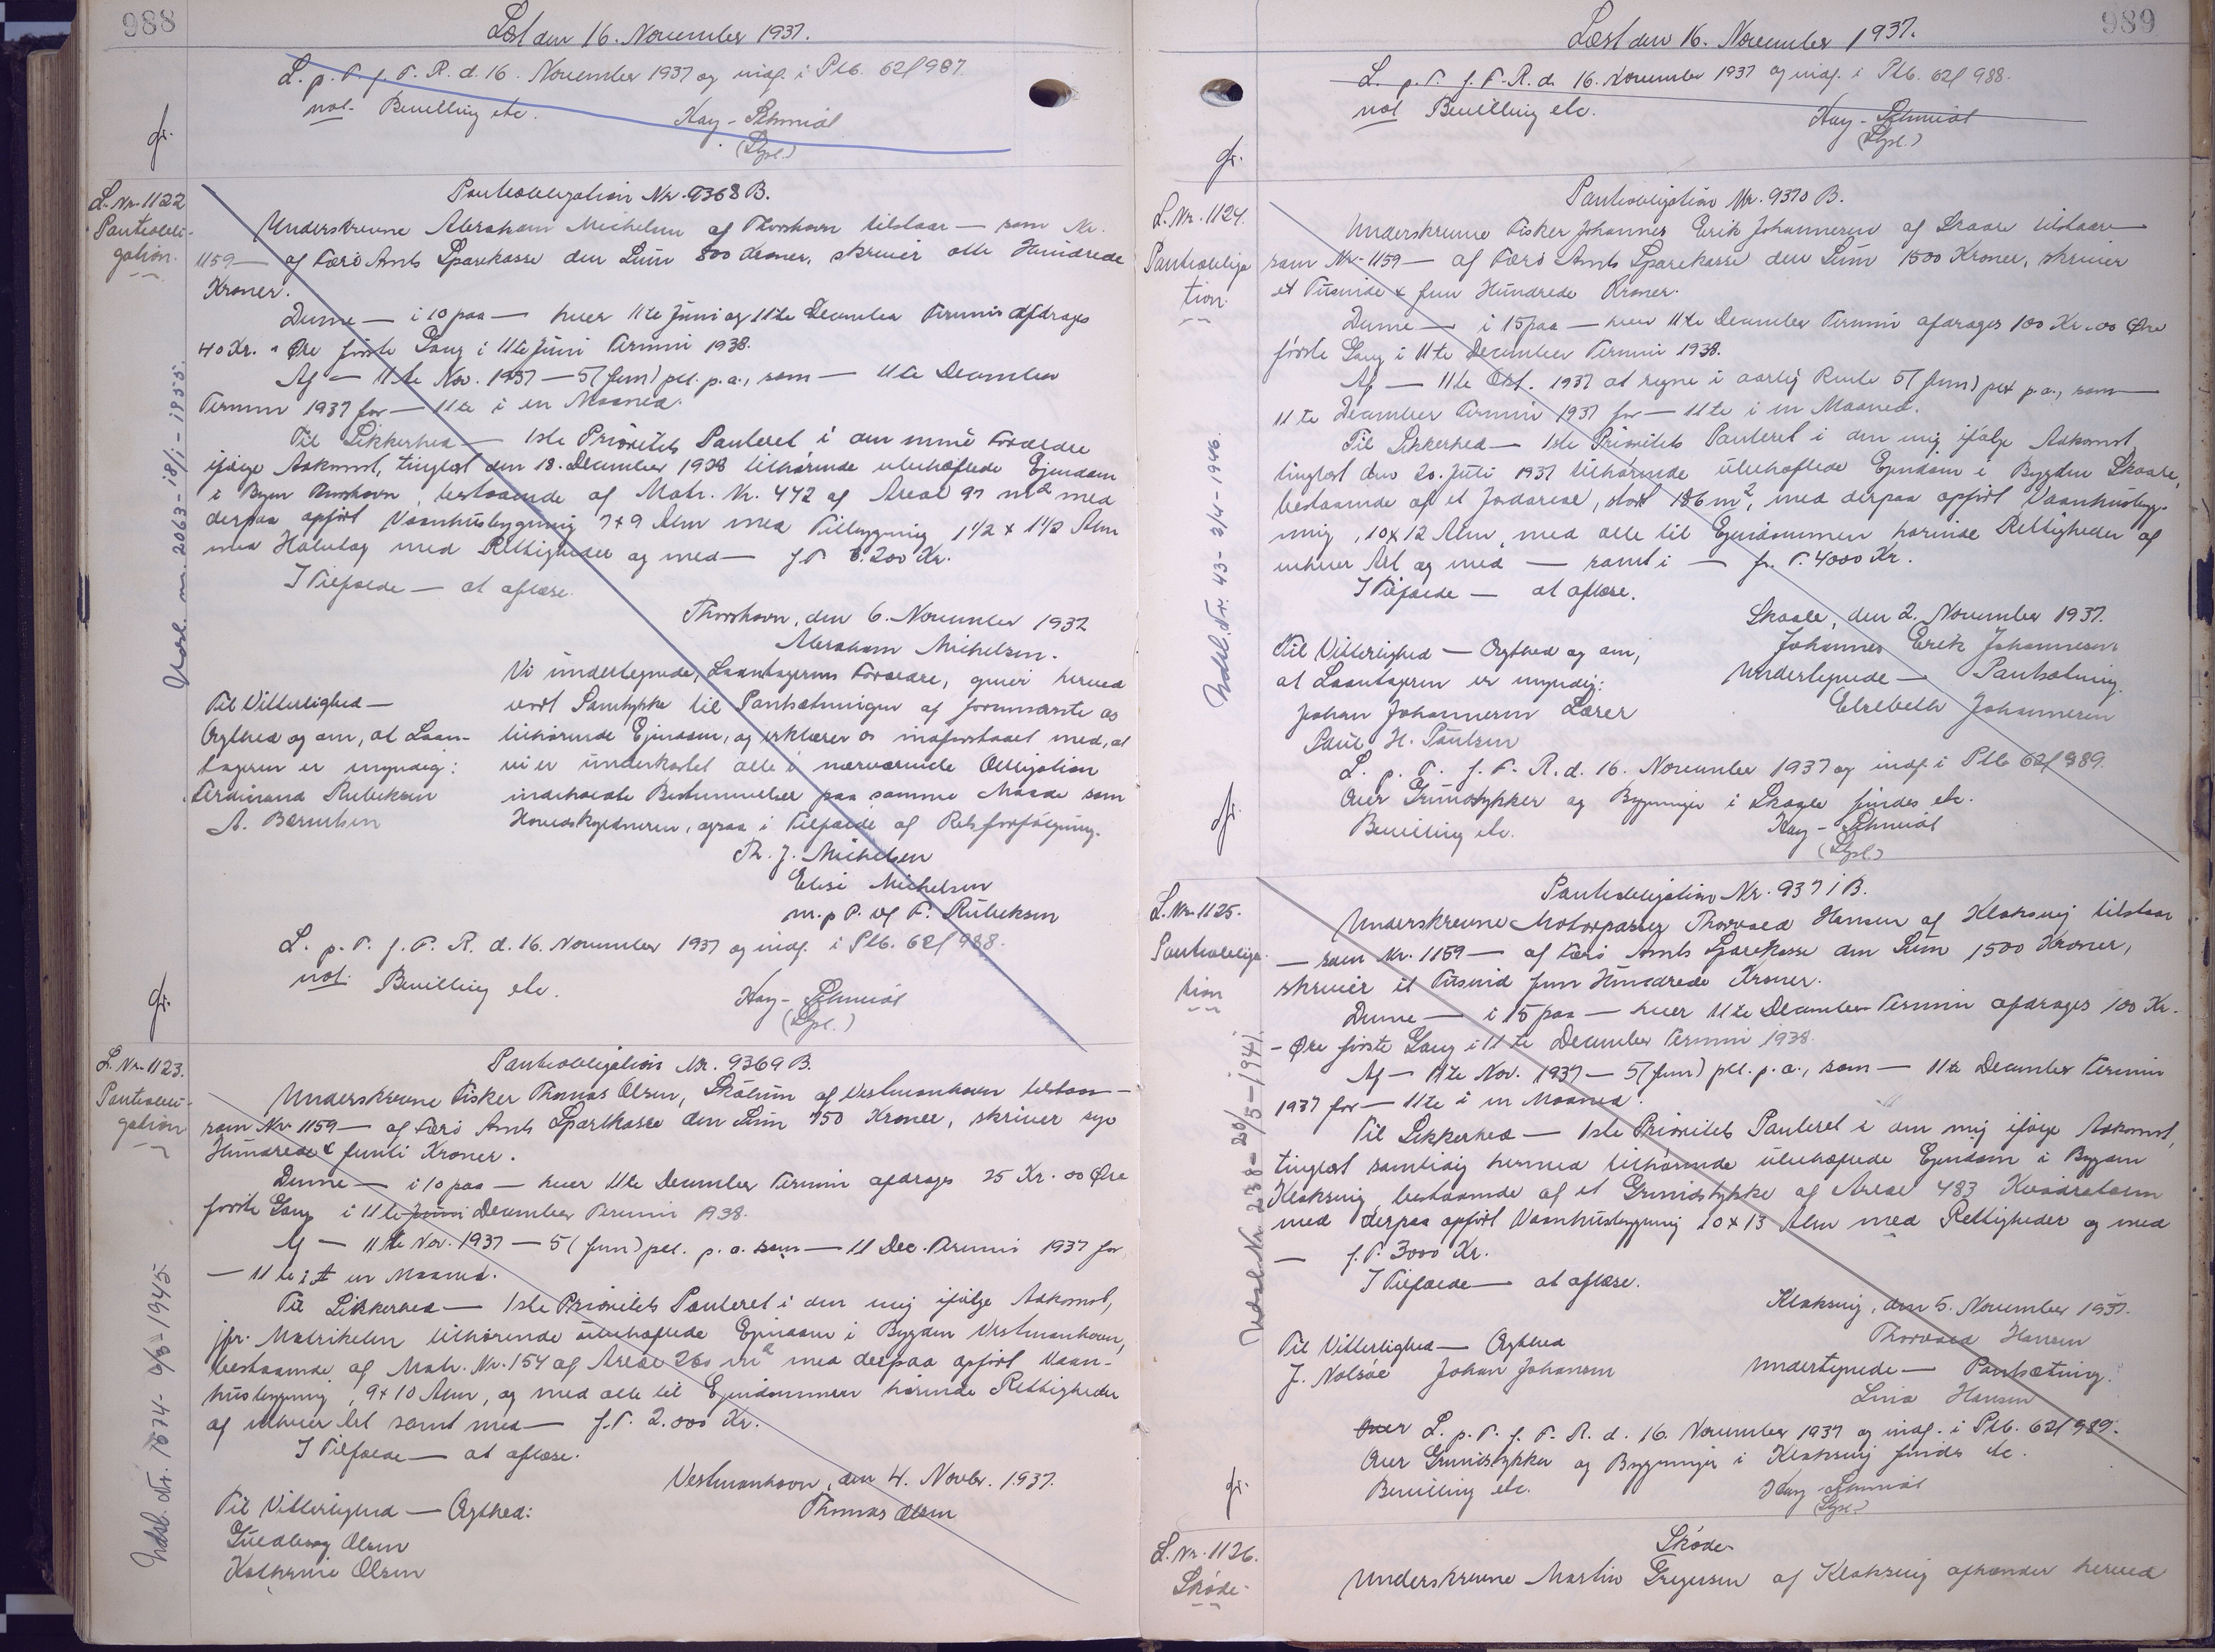 988
Læst den 16. November 1937.
L. p. T. f. F. R. d. 16. November 1937 og indf. i Ptb. 62f 987.
not. Bevilling etc.
Kay-Schmidt
gr.
L. Nr. 1122
Panteobli-
gation.
Udsl. nr. 2063-18/1-1955.
Panteobligation Nr. 9368 B.
Underskrevne Abraham Michelsen af Thorshavn tilstaar — som Nr.
1159 — af Færø Amts Sparekasse den Sum 800 Kroner, skriver otte Hundrede
Kroner.
Denne — i 10 paa — hver 11te Juni og 11te December Termin afdrages
40 Kr. " Øre første Gang i 11te Juni Termin 1938.
Af — 11te Nov. 1937 — 5 (fem) pct. p.a., som — 11te December
Termin 1937 for — 11te i en Maaned.
Til Sikkerhed — 1ste Prioritets Panteret i den mine Forældre
ifølge Adkomst, tinglæst den 18. December 1928 tilhørende ubehæftede Ejendom
i Byen Thorshavn, bestaaende af Matr. Nr. 472 af Areal 97 m2 med
derpaa opført Vaanhusbygning 7 x 9 Alen med Tilbygning 1 1/2 x 1 1/2 Alen
med Halvtag med Rettigheder og med — f T 6.200 Kr.
I Tilfælde — at aflæse.
Thorshavn, den 6. November 1937
Abraham Michelsen.
Vi undertegnede, Laantagerens Forældre, giver herved
vort Samtykke til Pantsætningen af fornævnte os
tilhørende Ejendom, og erklærer os indforstaaet med, at
vi er underkastet alle i nærværende Obligation
indeholdte Bestemmelser paa samme Maade som
Hovedskyldneren, ogsaa i Tilfælde af Retsforfølgning.
Til Vitterlighed —
Ægthed og om, at Laan-
tageren er myndig:
Ferdinand Rubeksen
A. Berntsen
Th. J. Michelsen
Elise Michelsen
m. p P. af F. Rubeksen
L. p. T. f. F. R. d. 16. November 1937 og indf. i Ptb. 62f 988.
not. Bevilling etc.
Kay-Schmidt
gr.
L. Nr. 1123.
Panteobli-
gation
Udsl. Nr. 1674- 6/8-1945
Panteobligation Nr. 9369 B.
Underskrevne Fisker Thomas Olsen, Skälum af Vestmanhavn tilstaar —
som Nr. 1159 — af Færø Amts Sparekasse den Sum 750 Kroner, skriver syv
Hundrede & femti Kroner.
Denne — i 10 paa — hver 11te December Termin afdrages 25 Kr. 00 Øre
første Gang i 11te Juni December Termin 1938.
Af — 11te Nov. 1937 — 5 (fem) pct. p. a. som — 11 Dec. Termin 1937 for
— 11te i en Maaned.
Til Sikkerhed — 1ste Prioritets Panteret i den mig ifølge Adkomst,
jfr. Matrikelen tilhørende ubehæftede Ejendom i Bygden Vestmanhavn,
bestaaende af Matr. Nr. 154 af Areal 260 m2 med derpaa opført Vaan-
husbygning, 9 x 10 Alen, og med alle til Ejendommen hørende Rettigheder
af enhver Art samt med — f. T. 2.000 Kr.
I Tilfælde — at aflæse.
Vestmanhavn, den 4. Novbr. 1937.
Til Vitterlighed — Ægthed:
Thomas Olsen
Guldborg Olsen
Kathrine Olsen
989
Læst den 16. November 1937.
L. p. T. f. F. R. d. 16. November 1937 og indf. i Ptb. 62f 988.
not Bevilling etc.
Kay-Schmidt
gr.
L. Nr. 1124.
Panteobliga
tion.
Udsl. Nr. 43-3/4-1946.
Panteobligation Nr. 9370 B.
Underskrevne Fisker Johannes Erik Johannesen af Skaale tilstaar —
som Nr. 1159 — af Færø Amts Sparekasse den Sum 1500 Kroner, skriver
et Tusinde & fem Hundrede Kroner.
Denne — i 15 paa — hver 11te December Termin afdrages 100 Kr. 00 Øre
første Gang i 11te December Termin 1938.
Af — 11te Okt. 1937 at regne i aarlig Rente 5 (fem) pct p.a., som —
11te December Termin 1937 for — 11te i en Maaned.
Til Sikkerhed — 1ste Prioritets Panteret i den mig ifølge Adkomst
tinglæst den 20. Juli 1937 tilhørende ubehæftede Ejendom i Bygden Skaale,
bestaaende af et Jordareal, stort 186 m2, med derpaa opført Vaanhusbyg-
ning, 10 x 12 Alen, med alle til Ejendommen hørende Rettigheder af
enhver Art og med — samt i — f. T. 4000 Kr.
I Tilfælde — at aflæse.
Skaale, den 2. November 1937.
Til Vitterlighed — Ægthed og om,
at Laantageren er myndig:
Johan Johannesen Lærer
Paul H. Poulsen
Johannes Erik Johannesen
Undertegnede — Pantsætning.
Elsebeth Johannesen
L. p. T. f. F. R. d. 16. November 1937 og indf. i Ptb 62f 989.
Over Grundstykker og Bygninger i Skaale findes etc.
Bevilling etc.
Kay-Schmidt
gr.
L. Nr. 1125.
Panteobliga
tion
Udsl. Nr. 238-20/5-1941.
Panteobligation Nr. 9371 B.
Underskrevne Motorpasser Thorvald Hansen af Klaksvig tilstaar
— som Nr. 1159 — af Færø Amts Sparekasse den Sum 1500 Kroner,
skriver et Tusind fem Hundrede Kroner.
Denne — i 15 paa — hver 11te December Termin afdrages 100 Kr.
- Øre første Gang i 11te December Termin 1938.
Af — 11te Nov. 1937 — 5 (fem) pct. p. a., som — 11te December Termin
1937 for — 11te i en Maaned.
Til Sikkerhed — 1ste Prioritets Panteret i den mig ifølge Adkomst,
tinglæst samtidig hermed tilhørende ubehæftede Ejendom i Bygden
Klaksvig, bestaaende af et Grundstykke af Areal 483 Kvadratalen
med derpaa opført Vaanhusbygning 10 x 13 Alen med Rettigheder og med
— f. T. 3000 Kr.
I Tilfælde — at aflæse.
Klaksvig, den 5. November 1937.
Til Vitterlighed — Ægthed
Thorvald Hansen
J. Nolsøe Johan Johansen
Undertegnede — Pantsætning.
Lina Hansen
Over L. p. T. f. F. R. d. 16. November 1937 og indf. i Ptb. 62f 989.
Over Grundstykker og Bygninger i Klaksvig findes etc.
Bevilling etc.
Kay-Schmidt
gr.
L. Nr. 1126.
Skøde.
Skøde
Underskrevne Martin Gregersen af Klaksvig afhænder herved